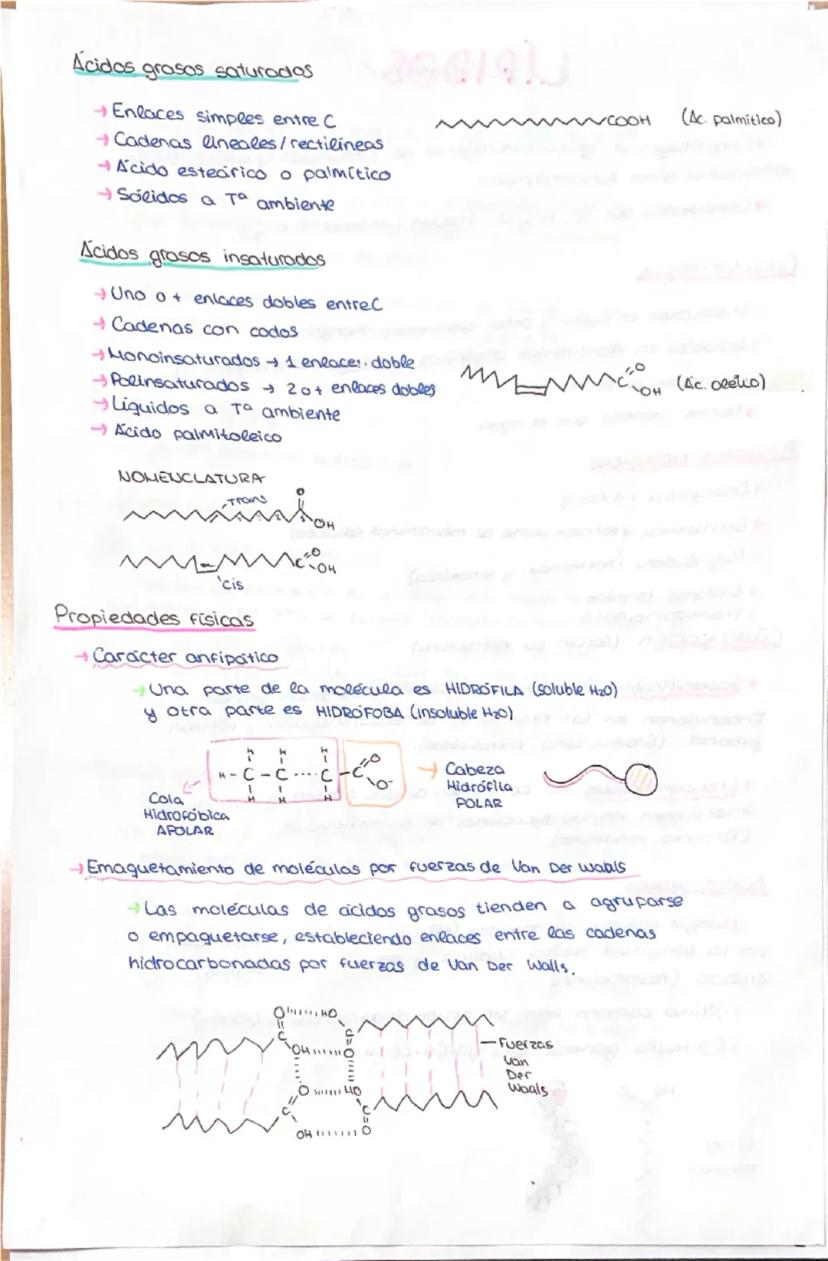 Ácidos grasos saturados
→ Enlaces simples entre C
COOH (Ac. palmítico)
→ Cadenas lineales/rectilíneas
→ Ácido esteárico o palmítico
→ Sólidos a Tª ambiente
Ácidos grasos insaturados
→ Uno o + enlaces dobles entre C
→ Cadenas con codos
→ Monoinsaturados → 1 enlace doble
→ Polinsaturados → 2 o + enlaces dobles
C O OH (Ác. oleico)
→ Líquidos a Tª ambiente
→ Ácido palmitoleico
NOMENCLATURA
Trans O
2 1 OH
C O OH
cis
Propiedades físicas
→ Carácter anfipático
→ Una parte de la molécula es HIDRÓFILA (soluble H2O)
y otra parte es HIDRÓFOBA (insoluble H2O)
H H H
H - C - C ···· C - C O O-
H H H
→ Cabeza
Hidrófila
POLAR
Cola
Hidrofóbica
APOLAR
→ Emaquetamiento de moléculas por fuerzas de Van Der Waals
→ Las moléculas de ácidos grasos tienden a agruparse
o empaquetarse, estableciendo enlaces entre las cadenas
hidrocarbonadas por fuerzas de Van Der Walls.
O HO
C C
OH O
Fuerzas
Van
Der
Waals
O HO
C C
OH O